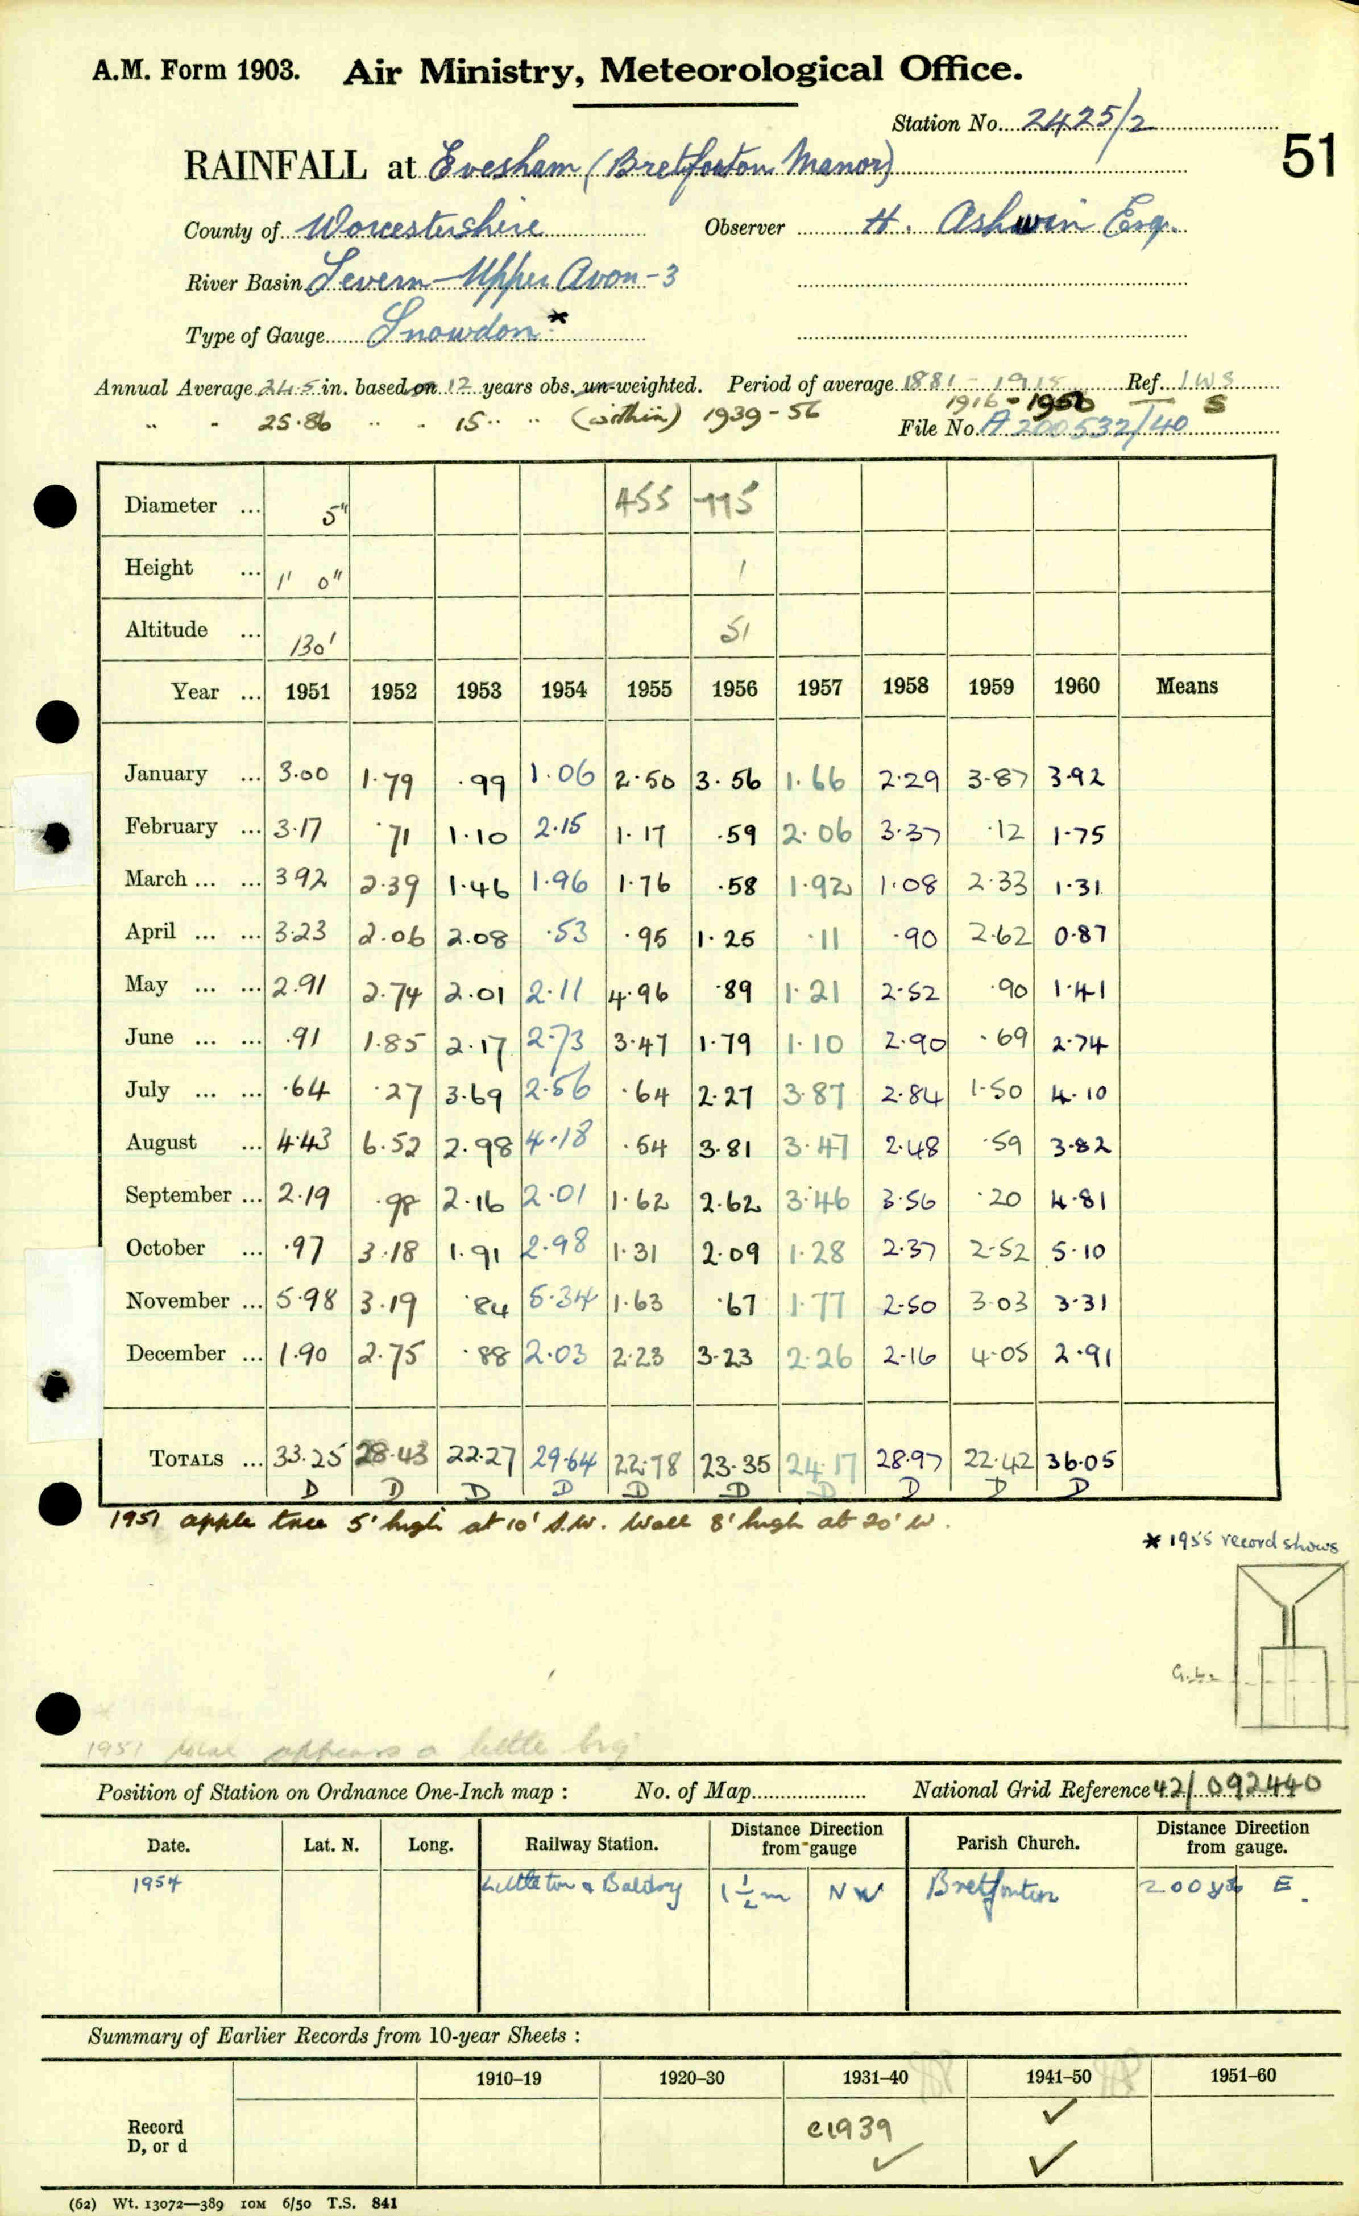 A.M. Form 1903. Air Ministry, Meteorological Office.
Station No. 2425/2
51
RAINFALL at Evesham (Bretforton Manor)
County of Worcestershire Observer H. Ashwin Esq.
River Basin Severn-Upper Avon-3
Type of Gauge Snowdon *
Annual Average 24.5 in. based on 12 years obs. un-weighted. Period of average 1881-1915 Ref. IWS
1916-1950 S
" " 25.86 " " 15 " " (within) 1939-56
File No. A200532/40
Diameter ... 5" 455 775
Height ... 1' 0" 1
Altitude ... 130' 51
Year ... 1951 1952 1953 1954 1955 1956 1957 1958 1959 1960 Means
January ... 3.00 1.79 .99 1.06 2.50 3.56 1.66 2.29 3.87 3.92
February ... 3.17 .71 1.10 2.15 1.17 .59 2.06 3.37 .12 1.75
March ... ... 3 92 2.39 1.46 1.96 1.76 .58 1.92 1.08 2.33 1.31
April ... ... 3.23 2.06 2.08 .53 .95 1.25 .11 .90 2.62 0.87
May ... ... 2.91 2.74 2.01 2.11 4.96 .89 1.21 2.52 .90 1.41
June ... ... .91 1.85 2.17 2.73 3.47 1.79 1.10 2.90 .69 2.74
July ... ... .64 .27 3.69 2.56 .64 2.27 3.87 2.84 1.50 4.10
August ... 4.43 6.52 2.98 4.18 .54 3.81 3.47 2.48 .59 3.82
September ... 2.19 .98 2.16 2.01 1.62 2.62 3.46 3.56 .20 4.81
October ... .97 3.18 1.91 2.98 1.31 2.09 1.28 2.37 2.52 5.10
November ... 5.98 3.19 .84 5.34 1.63 .67 1.77 2.50 3.03 3.31
December ... 1.90 2.75 .88 2.03 2.23 3.23 2.26 2.16 4.05 2.91
TOTALS ... 33.25 28.43 22.27 29.64 22.78 23.35 24.17 28.97 22.42 36.05
D D D D D D D D D D
1951 apple tree 5' high at 10' S.W. Wall 8' high at 20' W.
* 1955 record shows
G.L.
1951 total appears a little big
Position of Station on Ordnance One-Inch map : No. of Map National Grid Reference 42/092440
Date. Lat. N. Long. Railway Station. Distance Direction from gauge Parish Church. Distance Direction from gauge.
1954 Littleton & Badsey 1½ m NW Bretforton 200 yds E.
Summary of Earlier Records from 10-year Sheets :
1910–19 1920–30 1931–40 1941–50 1951–60
Record D, or d c1939 ✓ ✓ ✓
(62) Wt. 13072—389 10M 6/50 T.S. 841